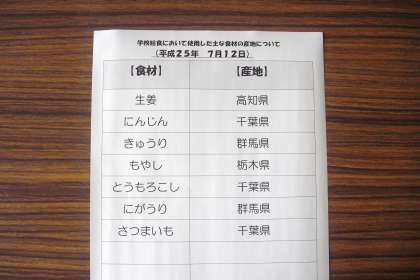 学校給食において使用した主な食材の産地について
(平成25年 7月12日)
【食材】 【産地】
生姜 高知県
にんじん 千葉県
きゅうり 群馬県
もやし 栃木県
とうもろこし 千葉県
にがうり 群馬県
さつまいも 千葉県